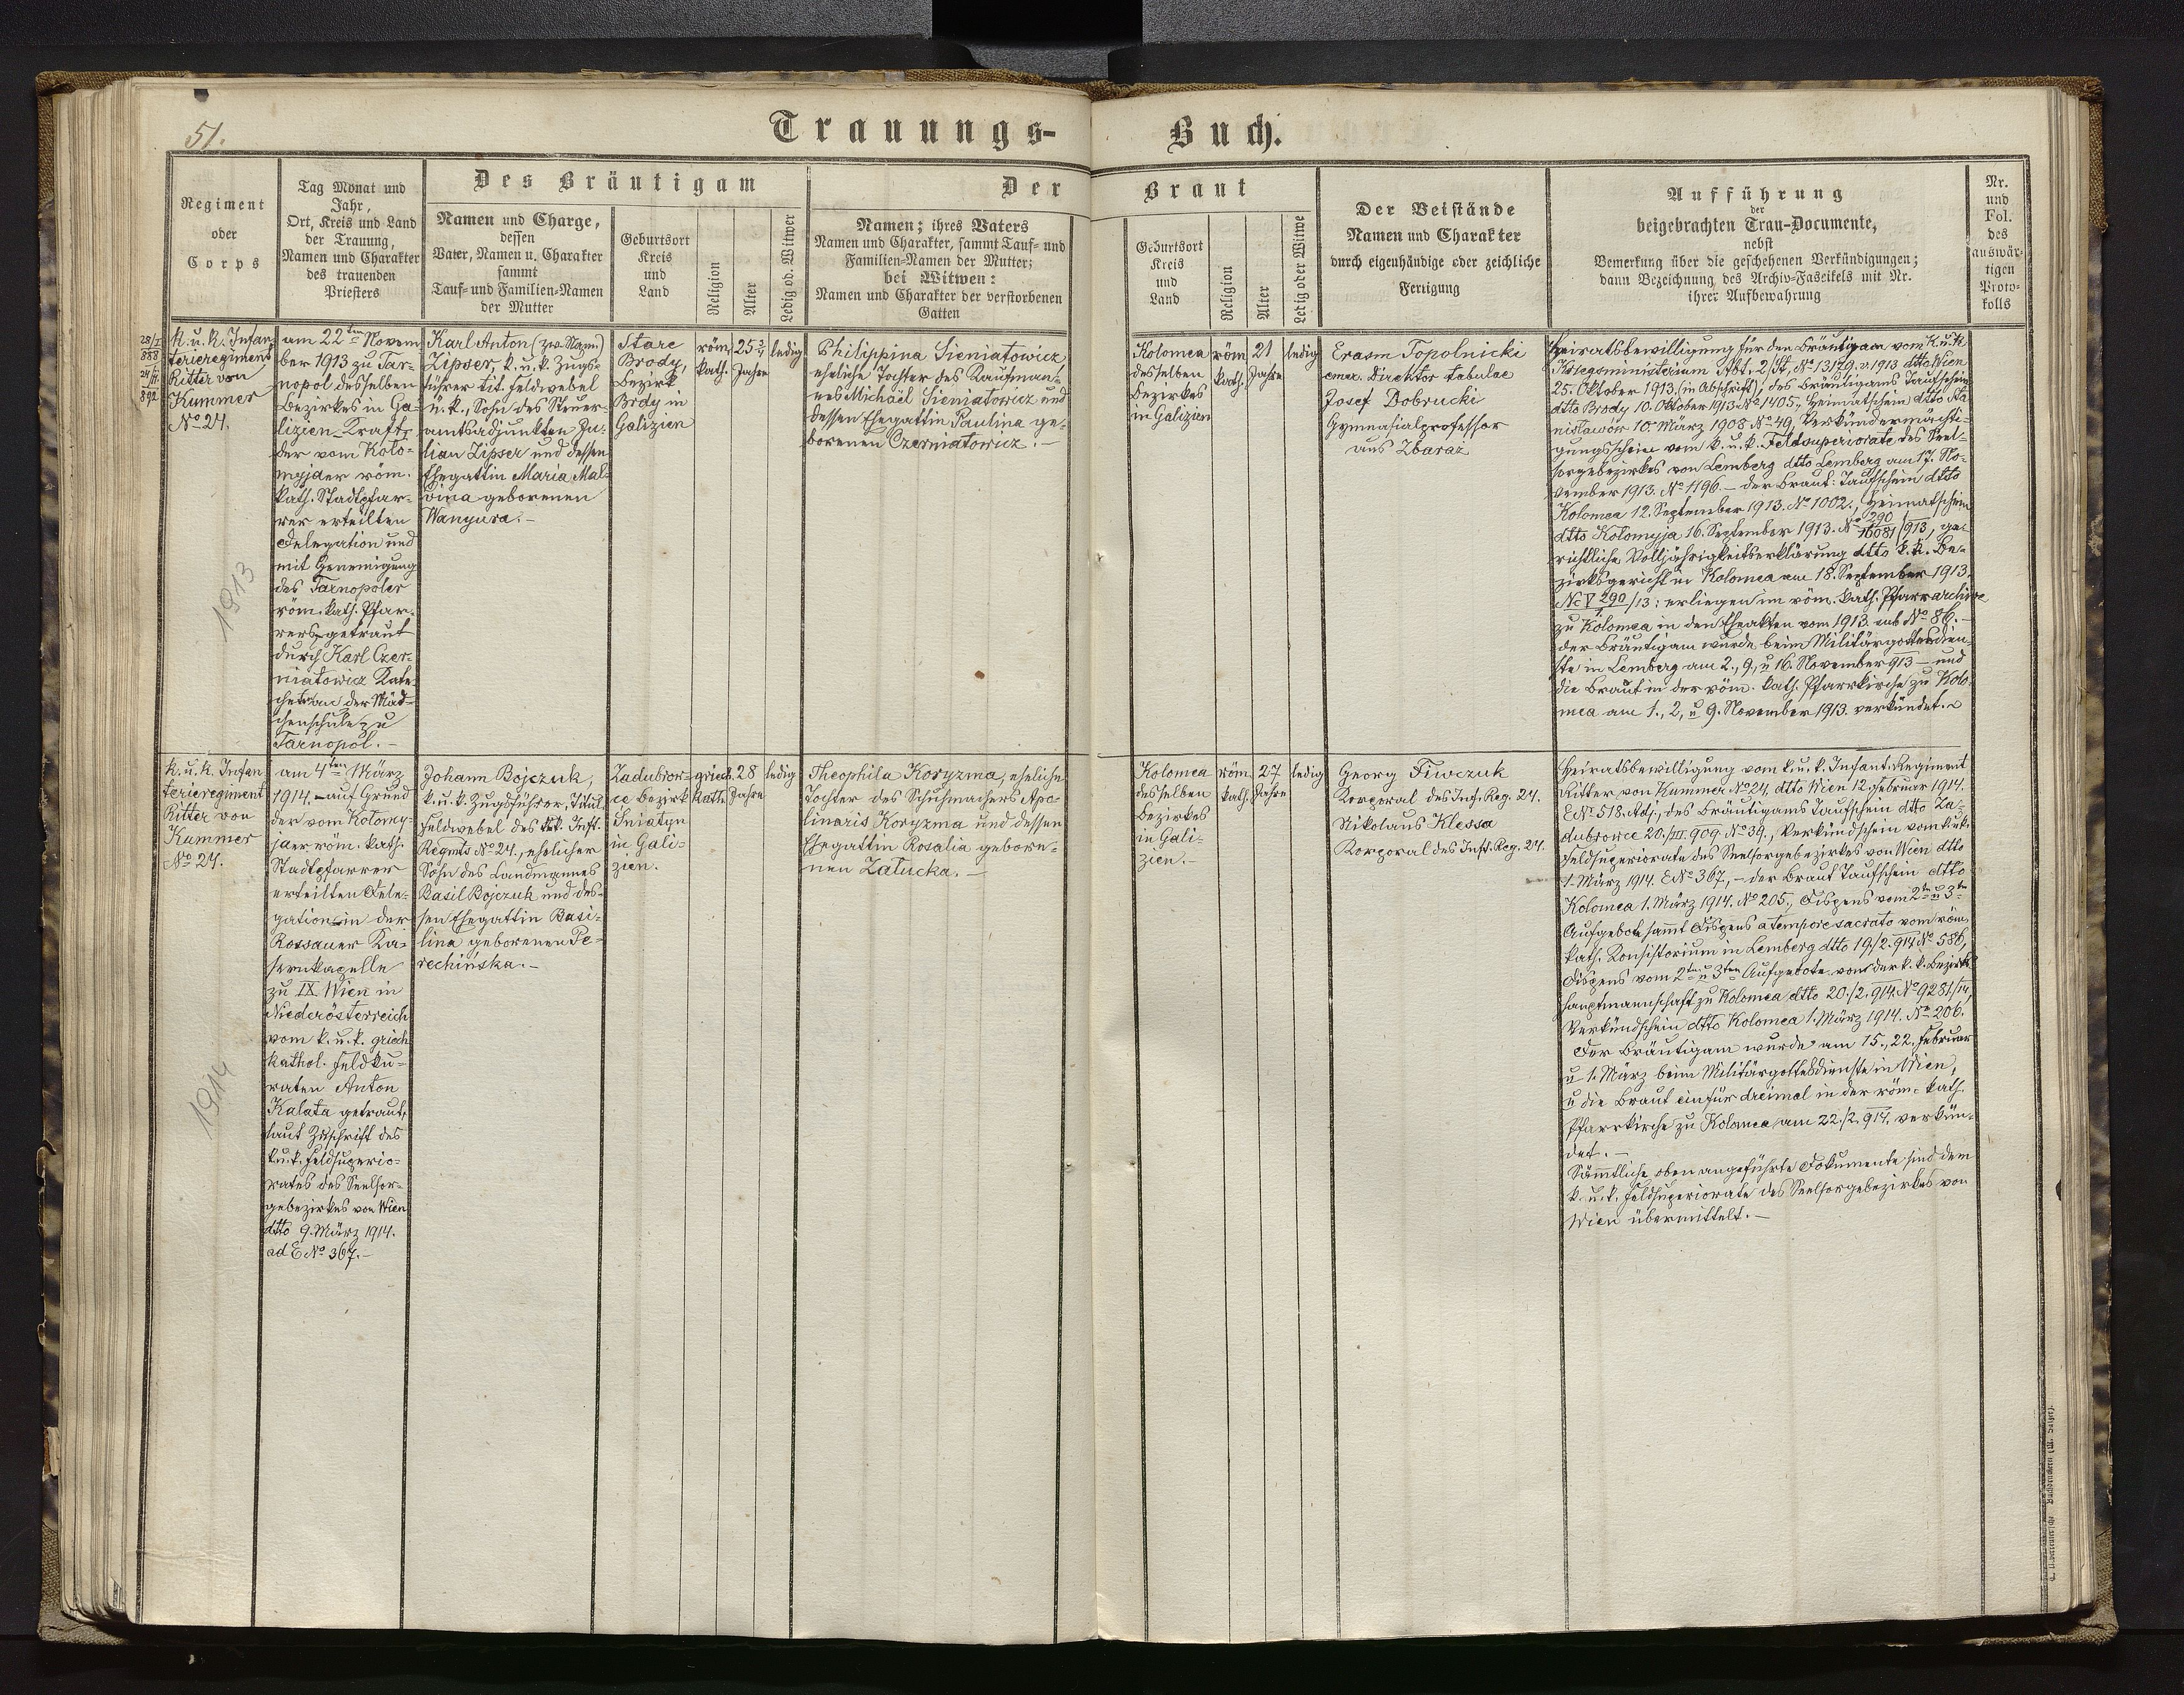 51.
Trauungs-
Buch.
Regiment
oder
Corps
Tag Monat und
Jahr,
Ort, Kreis und Land
der Trauung,
Namen und Charakter
des trauenden
Priesters
Des Bräutigam
Namen und Charge,
dessen
Vater, Namen u. Charakter
sammt
Tauf- und Familien-Namen
der Mutter
Geburtsort
Kreis
und
Land
Religion
Alter
Ledig od. Witwer
Der
Braut
Namen; ihres Vaters
Namen und Charakter, sammt Tauf- und
Familien-Namen der Mutter;
bei Witwen:
Namen und Charakter der verstorbenen
Gatten
Geburtsort
Kreis
und
Land
Religion
Alter
Ledig oder Witwe
Der Beistände
Namen und Charakter
durch eigenhändige oder zeichliche
Fertigung
Aufführung
der
beigebrachten Trau-Documente,
nebst
Bemerkung über die geschehenen Verkündigungen;
dann Bezeichnung des Archiv-Fascikels mit Nr.
ihrer Aufbewahrung
Nr.
und
Fol.
des
auswär-
tigen
Proto-
kolls
28/I
888
24/II
892
K. u. K. Infan
terieregiment
Ritter von
Kummer
No 24.
1913
am 22ten Novem
ber 1913 zu Tar-
nopol desselben
Bezirkes in Ga-
lizien Kraft
der vom Kolo-
myjaer röm.
kath. Stadtpfar-
rer erteilten
Delegation und
mit Genemigung
des Tarnopoler
röm. kath. Pfar-
rers getraut
durch Karl Czer-
niatowicz Kate
cheten an der Mäd-
chenschule zu
Tarnopol. -
Karl Anton (zw. Nam.)
Zipser, k. u. k. Zugs-
führer tit. Feldwebel
u. k., Sohn des Steuer-
amtsadjunkten Ju-
lian Zipser und dessen
Ehegattin Maria Mal-
vina geborenen
Wanyura. -
Stare
Brody,
Bezirk
Brody in
Galizien
röm.
kath.
25 3/4
Jahre
ledig
Philippina Sieniatowicz
eheliche Tochter des Kaufman-
nes Michael Sieniatowicz und
dessen Ehegattin Paulina ge-
borenen Czerniatowicz. -
Kolomea
desselben
Bezirkes
in Galizien
röm
kath.
21
Jahre
ledig
Erasm Topolnicki
emer. Direktor tabulae
Josef Dobrucki
Gymnasialprofessor
aus Zbaraz
Heiratsbewilligung für den Bräutigam vom K. u. K
Kriegsministerium Abt. 2/St, No 13179. v. 1913 dtto Wien
25. Oktober 1913. (in Abschrift); des Bräutigams Taufschein
dtto Brody 10. Oktober 1913 No 1405., Heimatschein dtto Sta
nislawów 10. März 1908 No 49, Verkündermächti-
gungsschein vom k. u. k. Feldsuperiorate des Seel-
sorgebezirkes von Lemberg dtto Lemberg am 17. No-
vember 1913. No 1196. - der Braut: Taufschein dtto
Kolomea 12. September 1913. No 1002., Heimatschein
dtto Kolomyja 16. September 1913. No 290/16081/913, ge-
richtliche Volljährigkeitserklärung dtto k. k. Be-
zirksgericht in Kolomea am 18. September 1913.
Nc V 290/1/13: erliegen im röm. kath. Pfarrarchive
zu Kolomea in den Eheakten vom 1913. sub No 86. -
der Bräutigam wurde beim Militärgottesdien-
ste in Lemberg am 2., 9., u 16. November 913 - und
die Braut in der röm. kath. Pfarrkirche zu Kolo-
mea am 1., 2, u 9. November 1913. verkündet.
K. u. K. Infan
terieregiment
Ritter von
Kummer
No 24.
1914
am 4ten März
1914. - auf Grund
der vom Kolomy-
jaer röm. kath.
Stadtpfarrer
erteilten Dele-
gation in der
Rossauer Ka-
sernkapelle
zu IX Wien in
Niederösterreich
vom k. u. k. griech
kathol. Feldku-
raten Anton
Kalata getraut,
laut Zuschrift des
k. u. k. Feldsuperio-
rates des Seelsor-
gebezirkes von Wien
dtto 9. März 1914.
ad E No 367. -
Johann Bojczuk,
k. u. k. Zugsführer, Titul.
Feldwebel des k. u. k. Inft.
Regmts No 24., ehelicher
Sohn des Landmannes
Basil Bojczuk und des-
sen Ehegattin Basi-
lina geborenen Pe-
rechińska. -
Zadubrow-
ce Bezirk
Śniatyn
in Gali-
zien.
griech.
kath.
28
Jahre
ledig
Theophila Koryzma, eheliche
Tochter des Schuhmachers Apo-
linaris Koryzma und dessen
Ehegattin Rosalia gebore-
nen Załucka. -
Kolomea
desselben
Bezirkes
in Gali-
zien. -
röm.
kath.
27
Jahre
ledig
Georg Fiwczuk
Korporal des Inf. Reg. 24.
Nikolaus Klessa
Korporal des Inft. Reg. 24.
Heiratsbewilligung vom k. u. k. Infant. Regiment
Ritter von Kummer No 24, dtto Wien 12. Februar 1914.
E No 518. Adj., des Bräutigams Taufschein dtto Za-
dubrowce 20./III. 909. No 39., Verkündschein vom k. u. k.
Feldsuperiorate des Seelsorgebezirkes von Wien dtto
1. März 1914. E No 367, - der Braut Taufschein dtto
Kolomea 1. März 1914. No 205., Dispens vom 2ten u 3ten
Aufgebote samt Dispens a tempore sacrato vom röm.
kath. Konsistorium in Lemberg dtto 19./2. 914 No 586,
Dispens vom 2ten u 3ten Aufgebote von der k. k. Bezirks
hauptmannschaft zu Kolomea dtto 20./2. 914. No 9281/14,
Verkündschein dtto Kolomea 1. März 1914. No 206.
Der Bräutigam wurde am 15., 22. Februar
u 1. März beim Militärgottesdienste in Wien,
u die Braut ein für dreimal in der röm. kath.
Pfarrkirche zu Kolomea am 22./2. 914. verkün-
det. -
Sämmtliche oben angeführte Dokumente sind dem
k. u. k. Feldsuperiorate des Seelsorgebezirkes von
Wien übermittelt. -